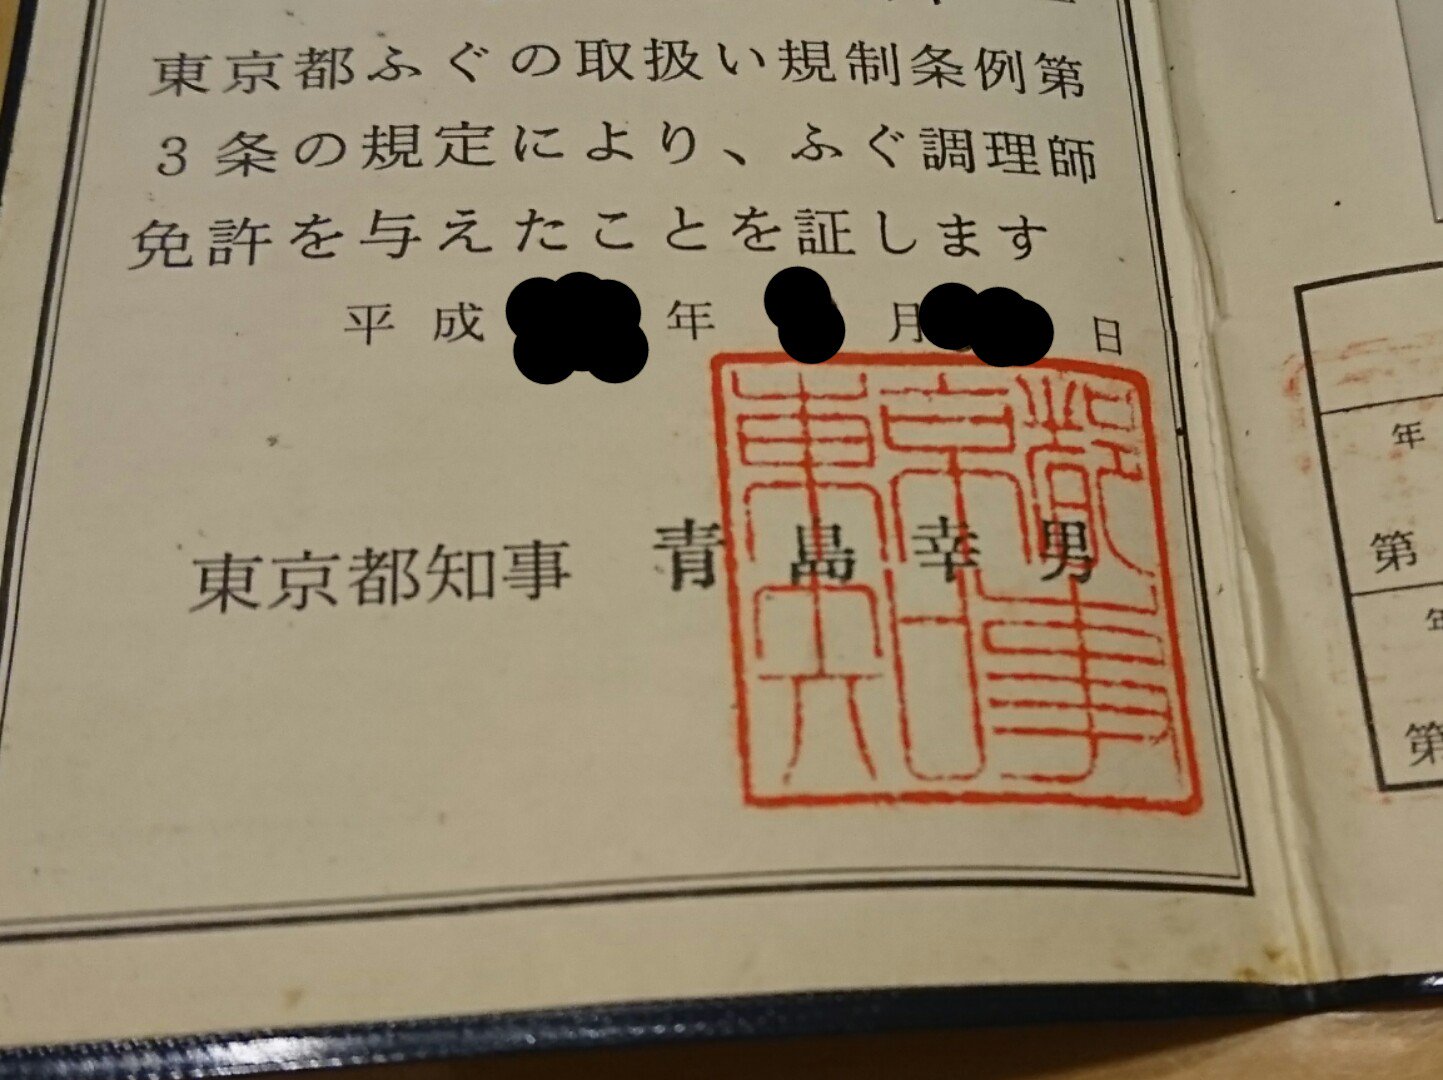 東京都ふぐの取扱い規制条例第
3条の規定により、ふぐ調理師
免許を与えたことを証します
平成 年 月 日
東京都知事 青島幸男
東京都知事
年
第
年
第